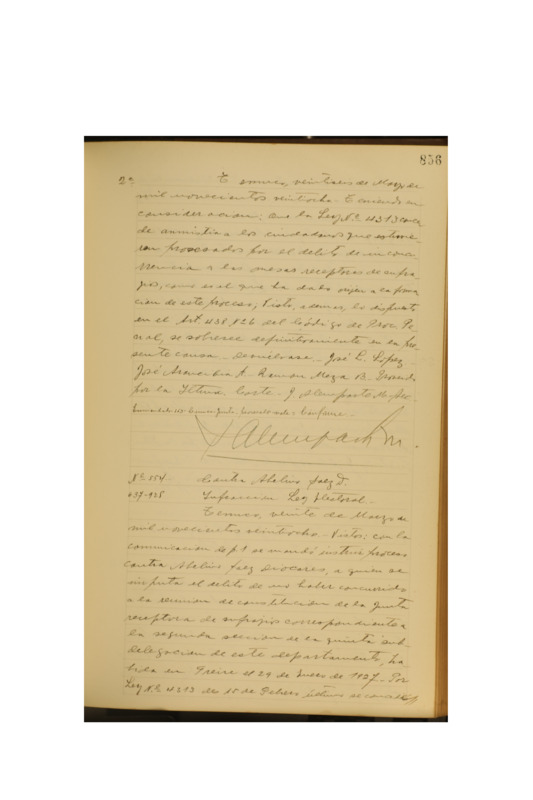 856
2a Temuco, veintiseis de Marzo de
mil novecientos veintiocho. Teniendo en
consideracion: que la Ley Nº 4313 conce
de amnistia a los ciudadanos que estuvie
ran procesados por el delito de inconcu
rrencia a las mesas receptoras de sufra-
gios, como es el que ha dado orijen a la forma
cion de este proceso; Visto, ademas, lo dispuesto
en el Art. 438 Nº 6 del Código de Proc. Pe-
nal, se sobresee definitivamente en la pre
sente causa. Devuélvase. José L. López
José Aravena A. Ramon Maza B.
por la Iltma. Corte. J
Conforme.
Nº 554 Contra Abelino Jaez D.
437-928 Infraccion Ley Electoral.
Temuco, veinte de Marzo de
mil novecientos veintiocho. Vistos: con la
comunicacion de f 1 se mandó instruir proceso
contra Abelino Jaez Diocares, a quien se
imputa el delito de no haber concurrido
a la reunion de constitucion de la Junta
receptora de sufrajios correspondiente a
la segunda seccion de la quinta sub-
delegacion de este departamento, ha
bida en Freire el 29 de Enero de 1927. Por
Ley Nº 4313 de 15 de Febrero último se concede